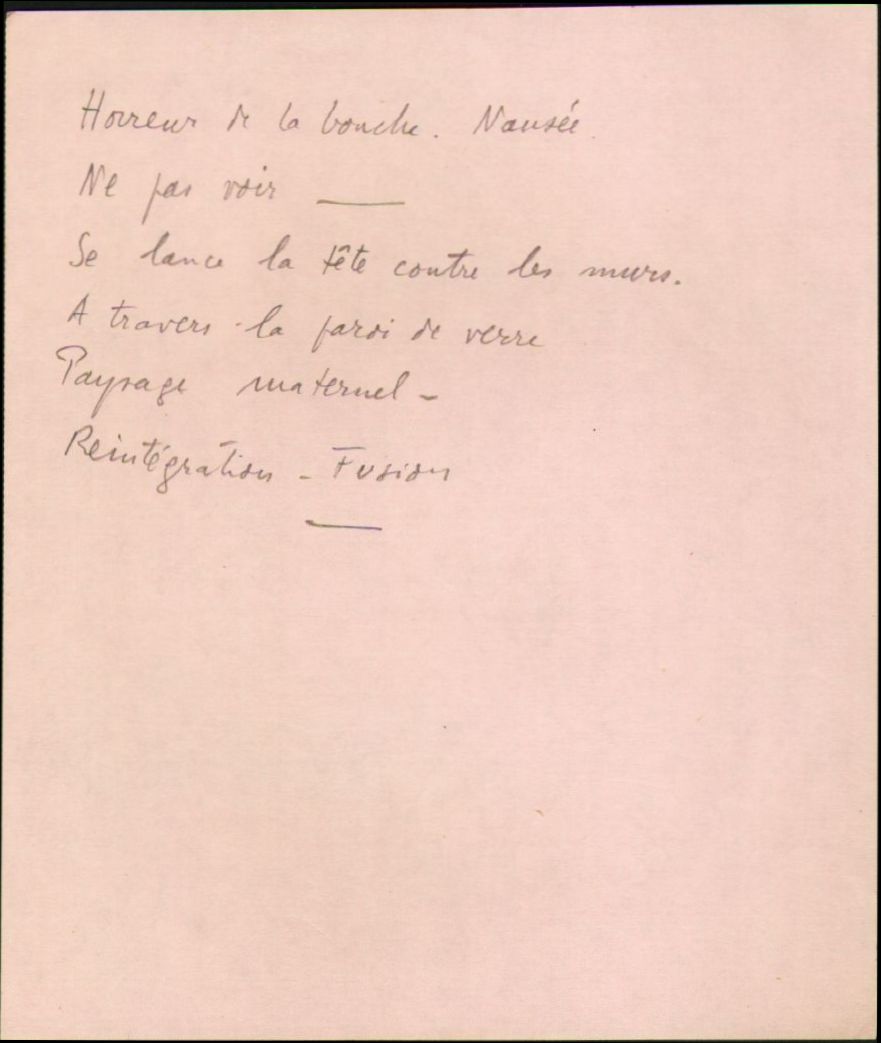 Horreur de la bouche. Nausée
Ne pas voir ___
Se lance la tête contre les murs.
A travers la paroi de verre
Paysage maternel -
Reintégration - Fusion